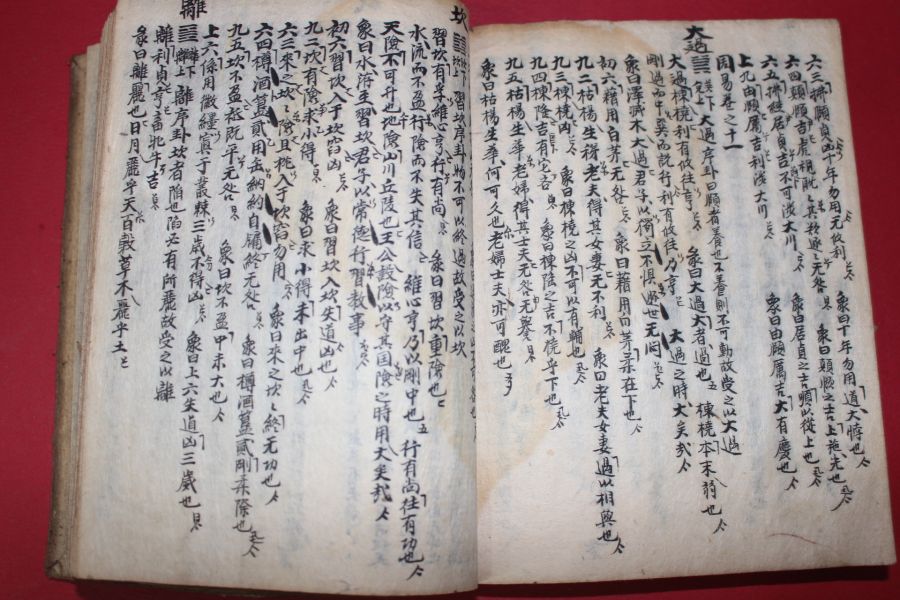 六三拂頤貞凶十年勿用无攸利 象曰十年勿用道大悖也
六四顚頤吉虎視眈々其欲逐々无咎 象曰顚頤之吉上施光也
六五拂經居貞吉不可涉大川 象曰居貞之吉順以從上也
上九由頤厲吉利涉大川 象曰由頤厲吉大有慶也
周易卷之十一
大過
䷛巽下兌上 大過序卦曰頤者養也不養則不可動故受之以大過
大過棟橈利有攸往亨 彖曰大過大者過也 棟橈本末弱也
剛過而中巽而說行利有攸往乃亨 大過之時大矣哉
象曰澤滅木大過君子以獨立不懼遯世无悶
初六藉用白茅无咎 象曰藉用白茅柔在下也
九二枯楊生稊老夫得其女妻无不利 象曰老夫女妻過以相與也
九三棟橈凶 象曰棟橈之凶不可以有輔也
九四棟隆吉有它吝 象曰棟隆之吉不橈乎下也
九五枯楊生華老婦得其士夫无咎无譽
象曰枯楊生華何可久也老婦士夫亦可醜也
坎
䷜坎下坎上 習坎序卦物不可以終過故受之以坎
習坎有孚維心亨行有尙 彖曰習坎重險也
水流而不盈行險而不失其信 維心亨乃以剛中也 行有尙往有功也
天險不可升也地險山川丘陵也王公設險以守其國險之時用大矣哉
象曰水洊至習坎君子以常德行習敎事
初六習坎入于坎窞凶 象曰習坎入坎失道凶也
九二坎有險求小得 象曰求小得未出中也
六三來之坎々險且枕入于坎窞勿用 象曰來之坎々終无功也
六四樽酒簋貳用缶納約自牖終无咎 象曰樽酒簋貳剛柔際也
九五坎不盈祗旣平无咎 象曰坎不盈中未大也
上六係用徽纆寘于叢棘三歲不得凶 象曰上六失道凶三歲也
離
䷝離下離上 離序卦坎者陷也陷必有所麗故受之以離
離利貞亨畜牝牛吉
彖曰離麗也日月麗乎天百穀草木麗乎土